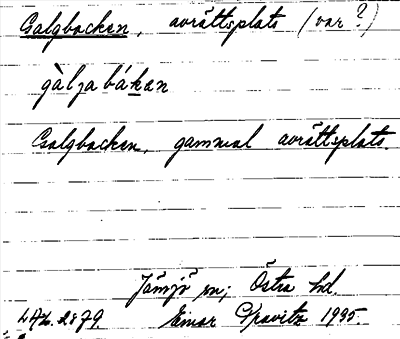 Galgbacken, avrättsplats (var?)
gàlja bákan
Galgbacken, gammal avrättsplats.
Jämjö sn; Östra hd.
2879. Einar 1935.